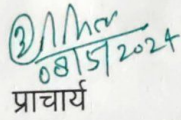 08/5/2024
प्राचार्य